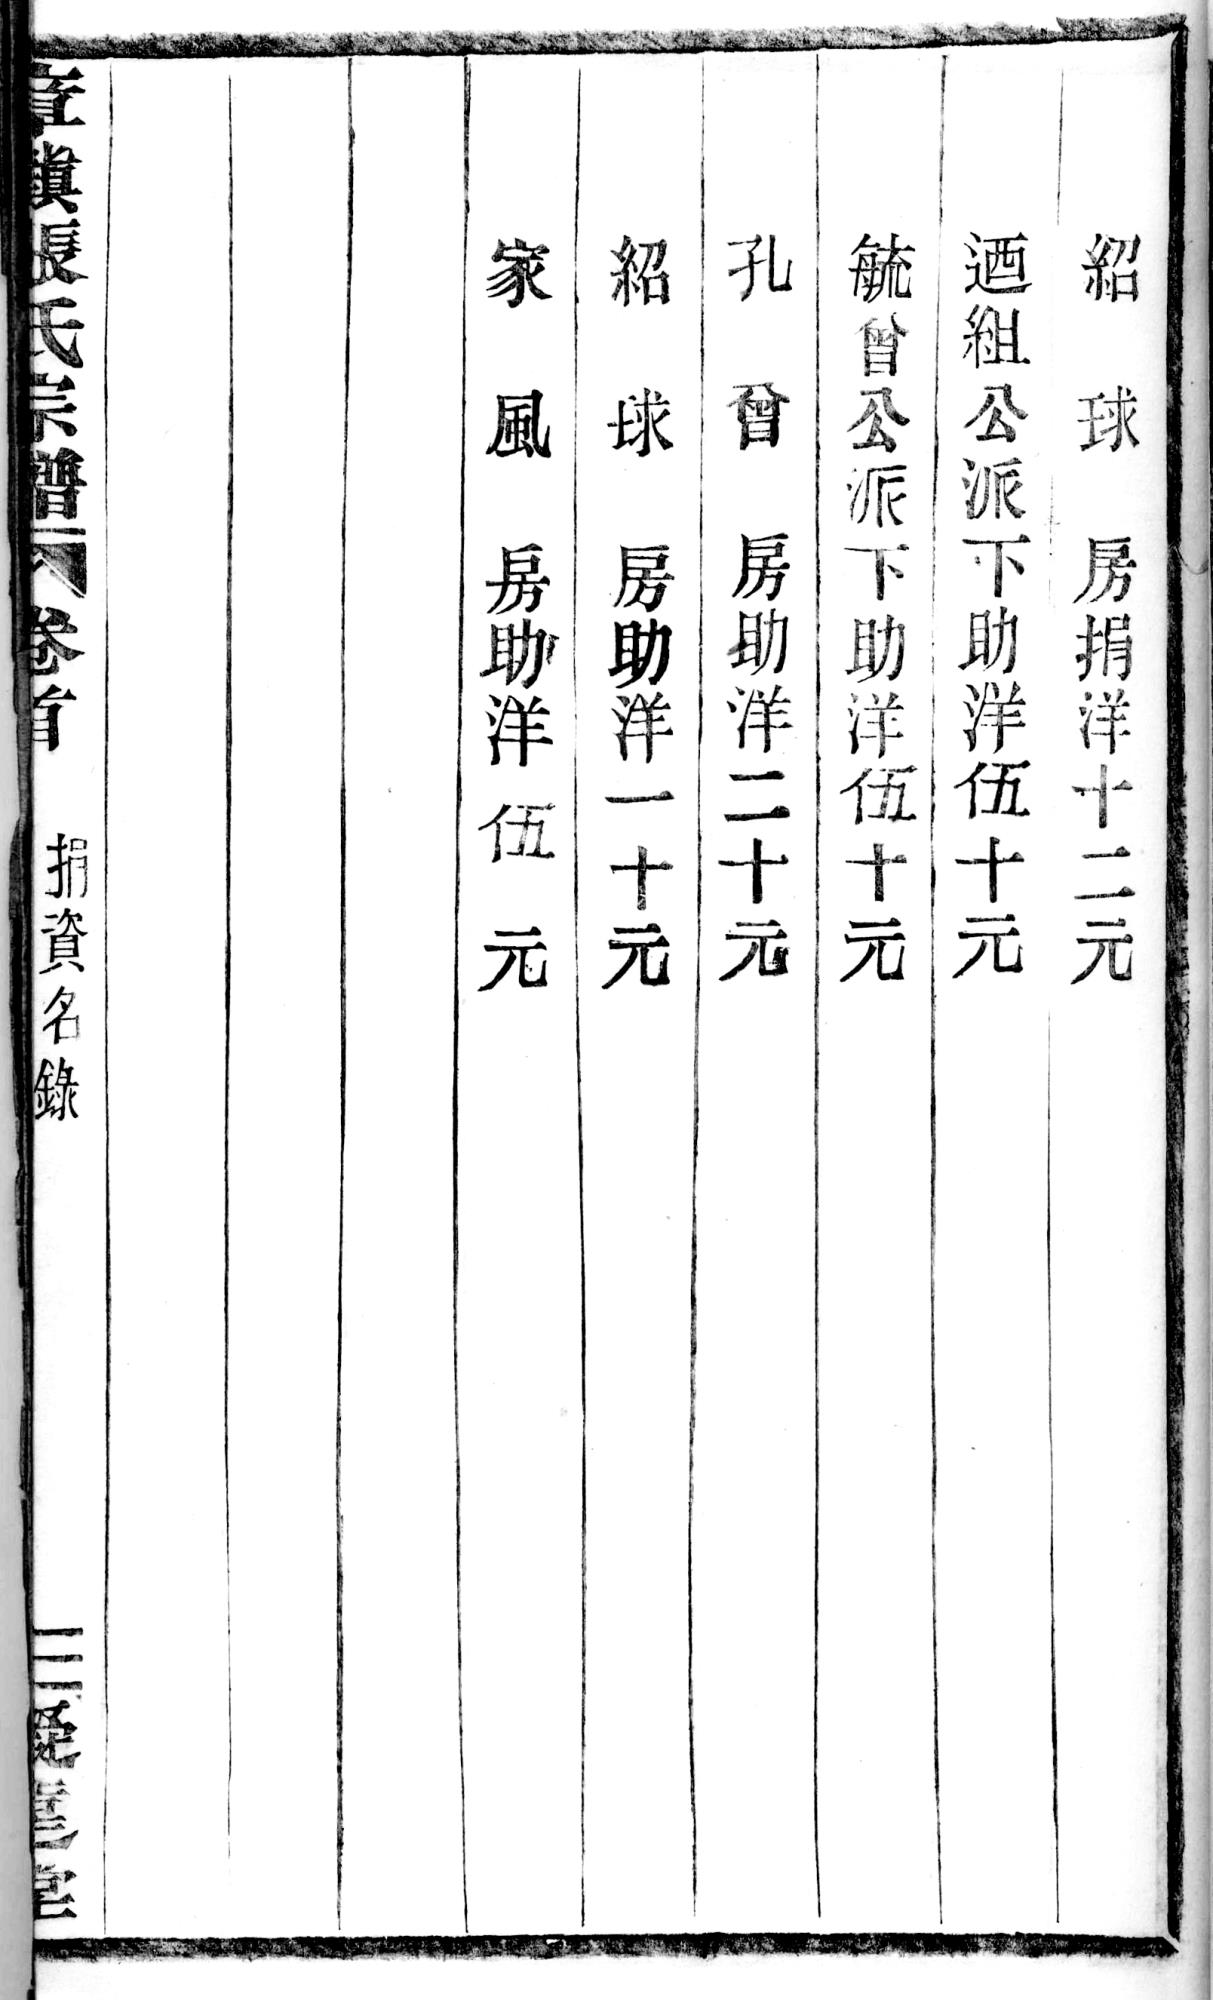 紹球房捐洋十二元
迺組公派下助洋伍十元
毓曾公派下助洋伍十元
孔曾房助洋二十元
紹球房助洋一十元
家風房助洋伍元
章鎭張氏宗譜 卷首 捐資名錄 三 堂